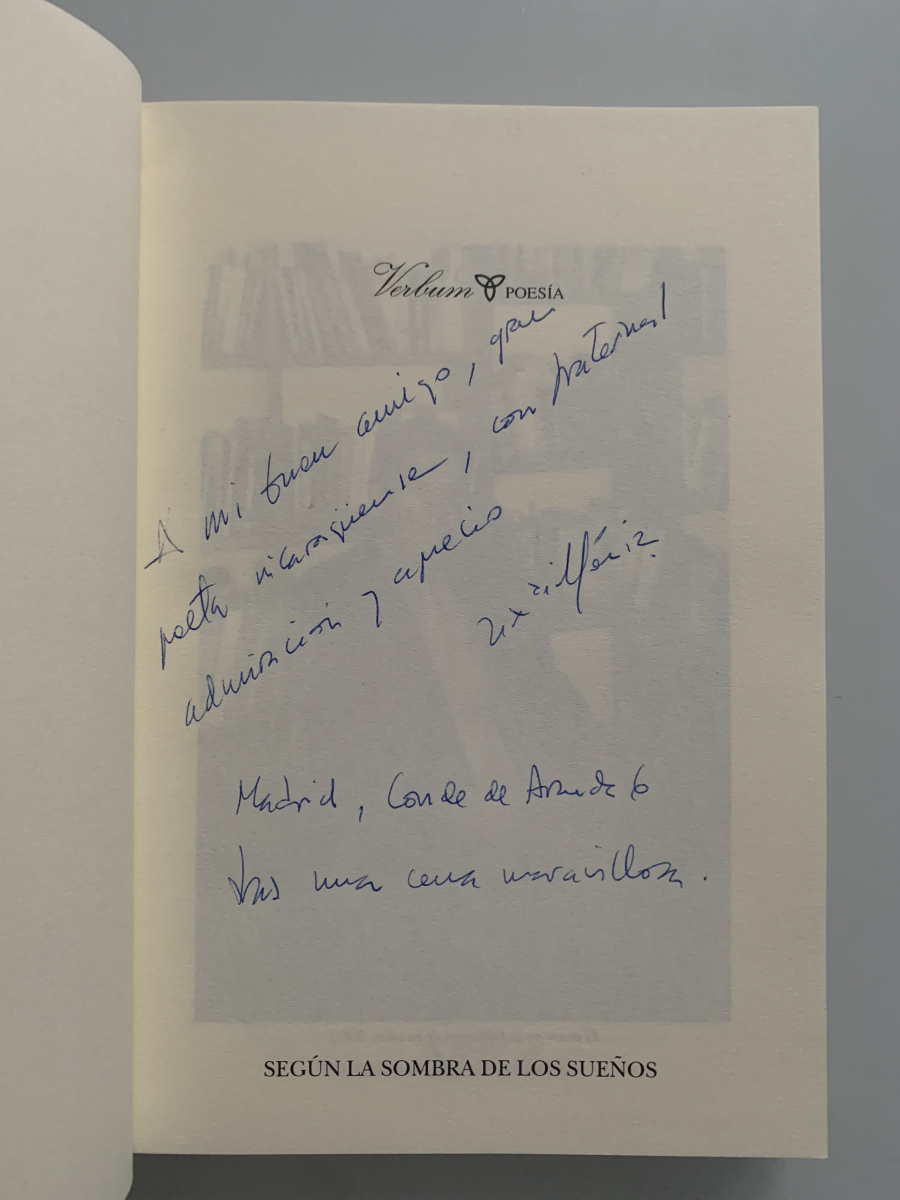 Verbum POESÍA
A mi buen amigo, gran
poeta nicaragüense, con fraternal
admiración y aprecio
Madrid, Conde de Aranda 6
tras una cena maravillosa.
SEGÚN LA SOMBRA DE LOS SUEÑOS